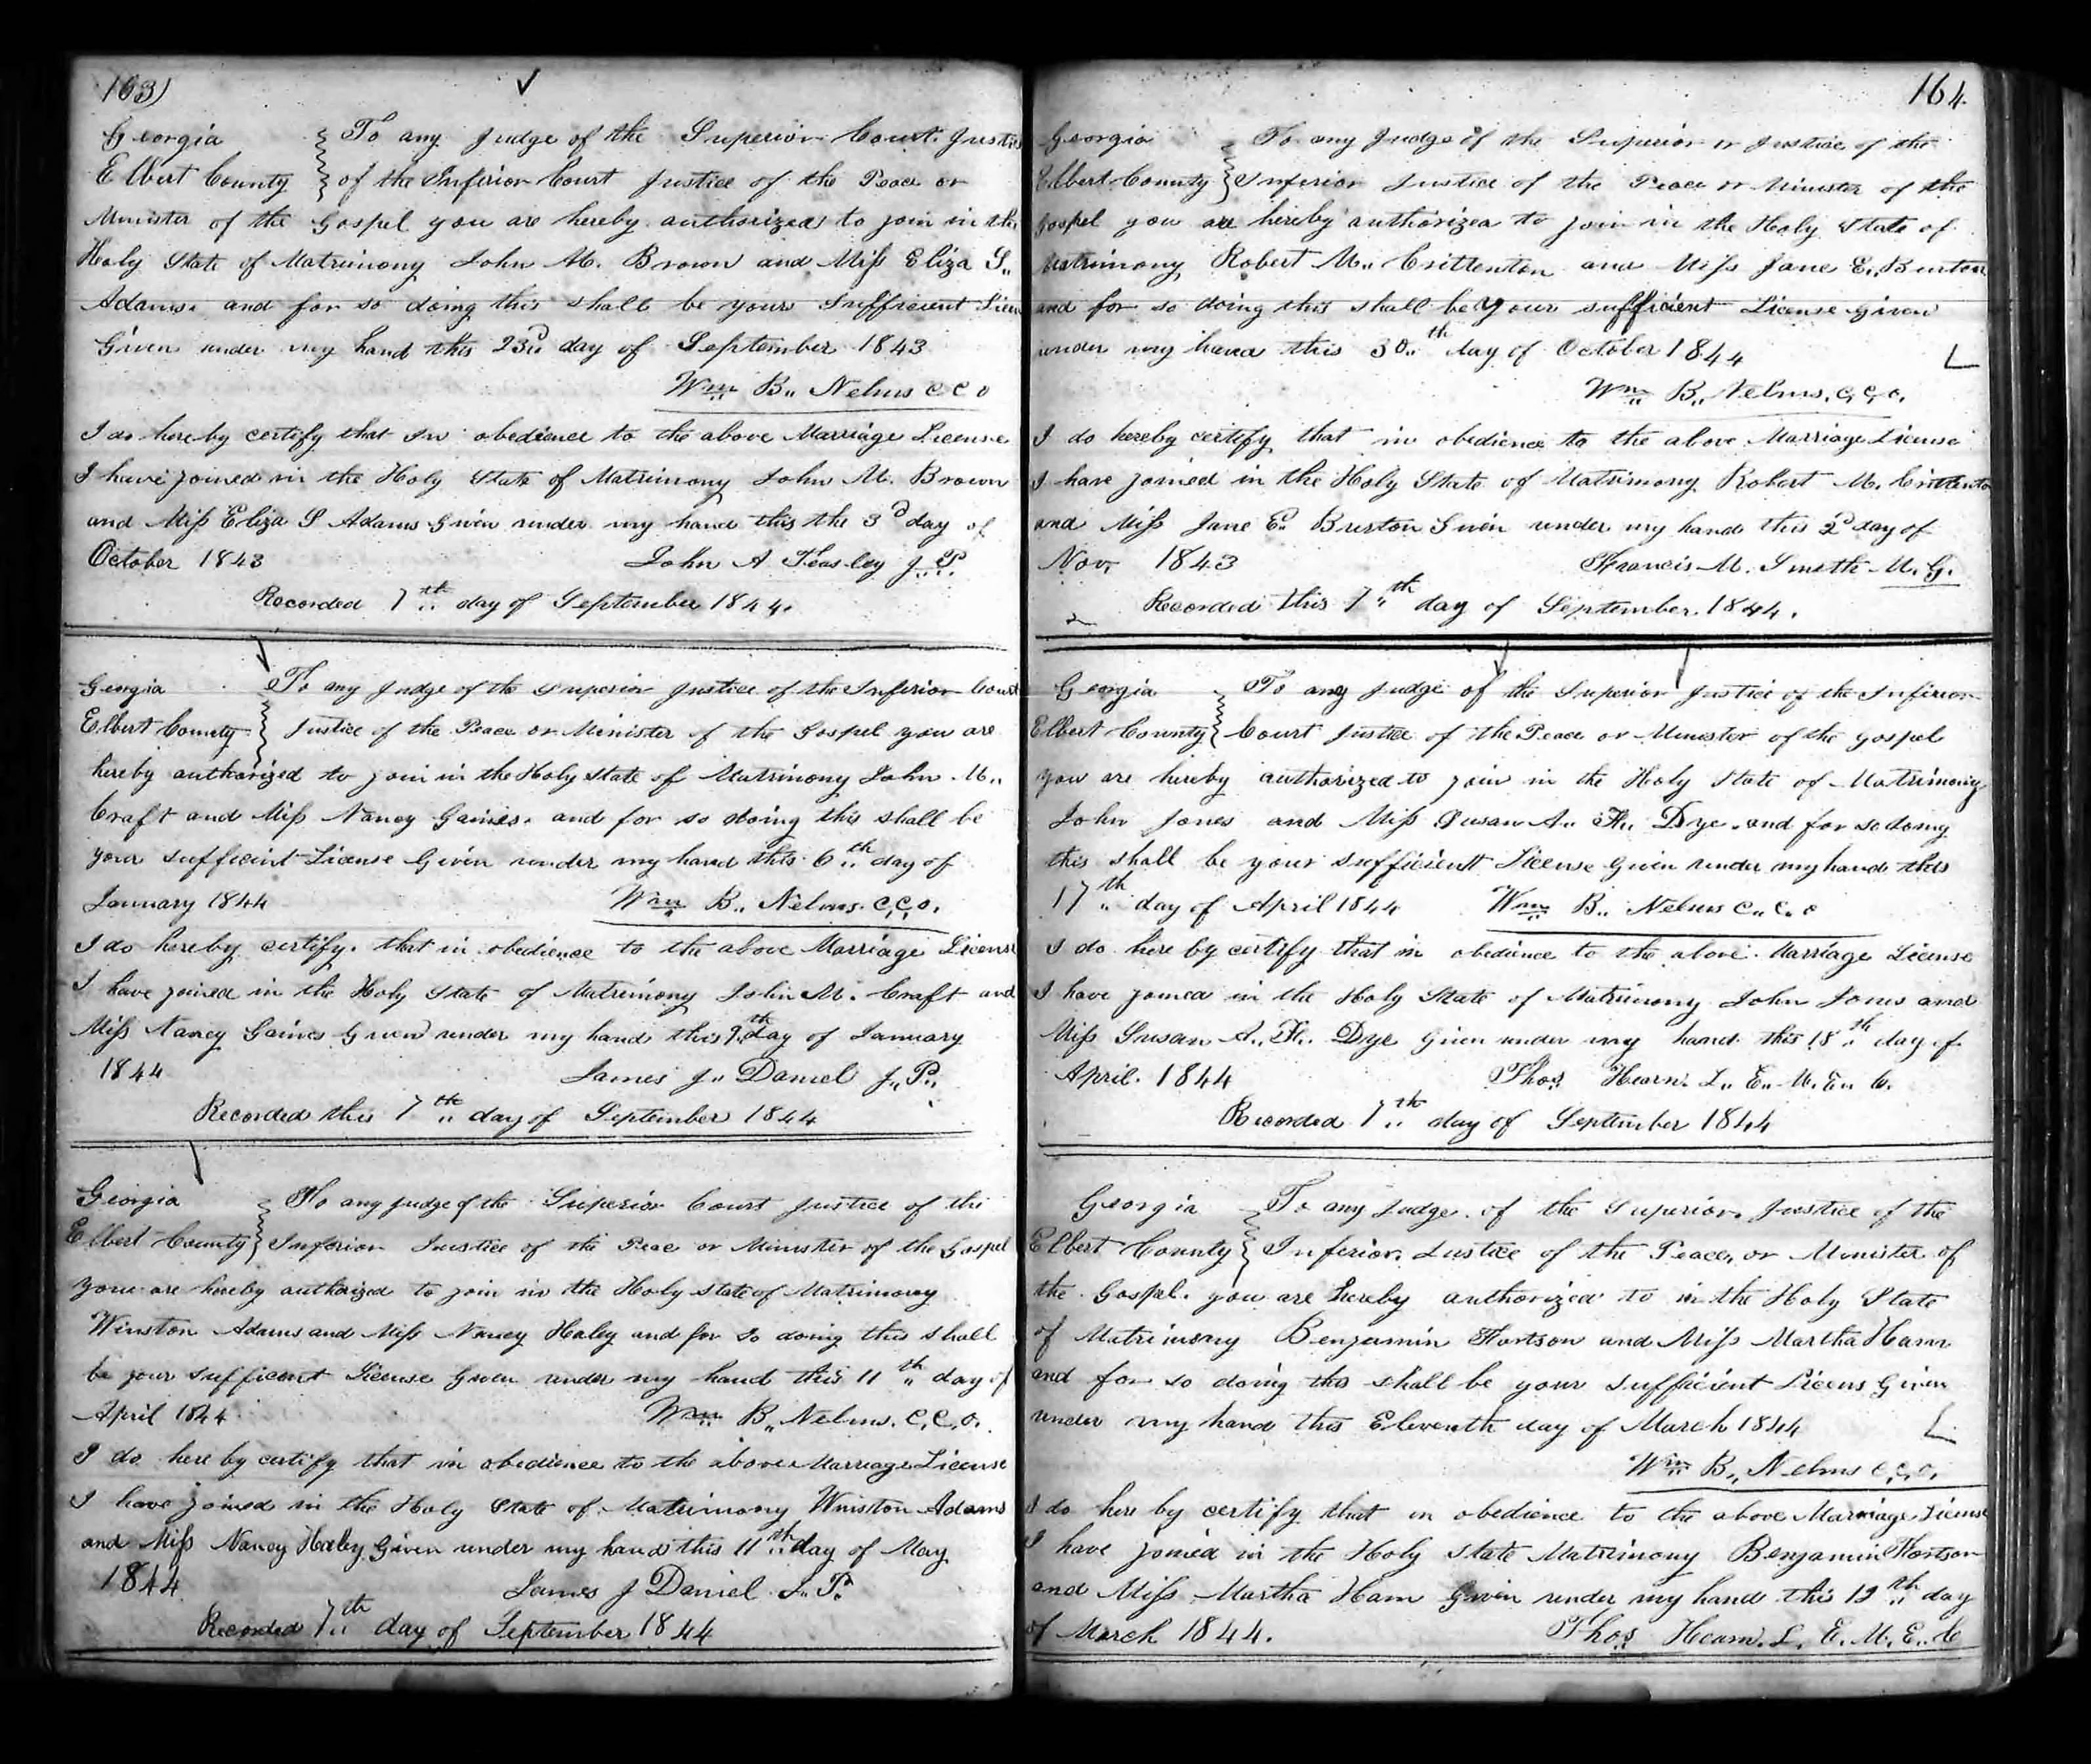 163)
Georgia To any Judge of the Superior Court. Justice
Elbert County of the Inferior Court Justice of the Peace or
Minister of the Gospel you are hereby authorized to join in the
Holy State of Matrimony John M. Brown and Miss Eliza S.
Adams. and for so doing this shall be yours Sufficient
Given under my hand this 23d day of September 1843
Wm B. Nelms c c o
I do hereby certify that In obedience to the above Marriage License
I have joined in the Holy State of Matrimony John M. Brown
and Miss Eliza S Adams Given under my hand this the 3d day of
October 1843 John A Teasley J. P.
Recorded 7th day of September 1844.
Georgia To any Judge of the Superior Justice of the Inferior Court
Elbert County Justice of the Peace or Minister of the Gospel you are
hereby authorized to join in the Holy State of Matrimony John M.
Craft and Miss Nancy Gaines. and for so doing this shall be
your sufficint License Given under my hand this 6th day of
January 1844 Wm B. Nelms. c.c.o.
I do hereby certify. that in obedience to the above Marriage License
I have joined in the Holy State of Matrimony John M. Craft and
Miss Nancy Gaines Given under my hand this 7th day of January
1844 James J. Daniel J. P.
Recorded this 7th day of September 1844
Georgia To any Judge of the Superior Court Justice of the
Elbert County Inferior Justice of the Peac or Minister of the Gospel
you are hereby authorized to join in the Holy State of Matrimony
Winston Adams and Miss Nancy Haley and for so doing this shall
be your sufficent License Given under my hand this 11th day of
April 1844 Wm B. Nelms. C.C.o.
I do here by certify that in obedience to the above Marriage License
I have joined in the Holy State of Matrimony Winston Adams
and Miss Nancy Haley Given under my hand this 11th day of May
1844 James J Daniel J. P.
Recorded 7th day of September 1844
164.
Georgia To any Judge of the Superior or Justice of the
Elbert County Inferior Justice of the Peace or Minister of the
Gospel you are hereby authorized to join in the Holy State of
Matrimony Robert M. Crittenton and Miss Jane E. Burton
and for so doing this shall be your sufficient License Given
under my hand this 30th day of October 1844
Wm B. Nelms. c.c.o.
I do hereby certify that in obedience to the above Marriage License
I have joined in the Holy State of Matrimony Robert M. Crittenton
and Miss Jane E. Burton Given under my hand this 2d day of
Nov. 1843 Francis M. Smith M. G.
Recorded this 7th day of September. 1844.
Georgia To any Judge of the Superior Justice of the Inferior
Elbert County Court Justice of the Peace or Minister of the gospel
you are hereby authorized to join in the Holy State of Matrimony
John Jones and Miss Susan A. H. Dye. and for so doing
this shall be your sufficient License Given under my hand this
17th day of April 1844 Wm B. Nelms c. c. o
I do here by certify that in obedience to the above Marriage License
I have joined in the Holy State of Matrimony John Jones and
Miss Susan A. H. Dye Given under my hand this 18th day of
April. 1844 Thos Hearn. L. E. M. E. C.
Recorded 7th day of September 1844
Georgia To any Judge of the Superior. Justice of the
Elbert County Inferior. Justice of the Peace, or Minister of
the Gospel. you are hereby authorized to in the Holy State
of Matrimony Benjamin Hortson and Miss Martha Ham
and for so doing this shall be your sufficient Licens Given
under my hand this Eleventh day of March 1844
Wm B. Nelms c.c.o.
I do here by certify that in obedience to the above Marriage License
I have joined in the Holy State Matrimony Benjamin Hortson
and Miss Martha Ham Given under my hand this 12th day
of March 1844. Thos Hearn. L. E. M. E. C